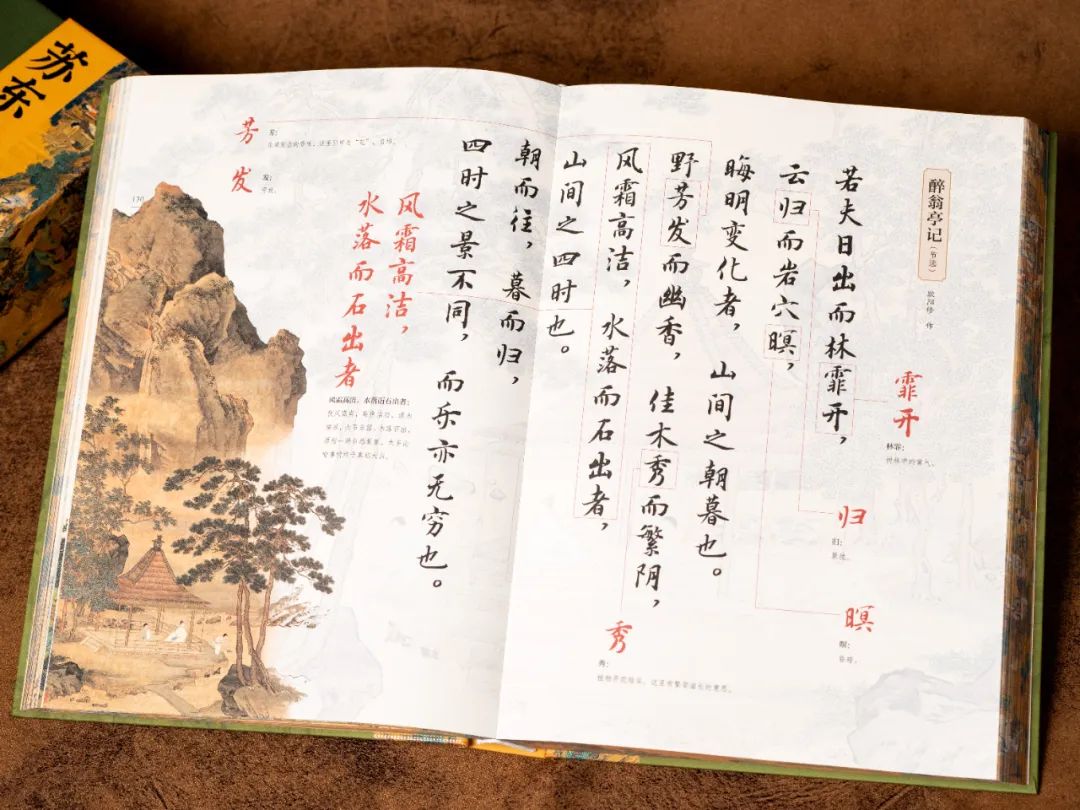 苏东
醉翁亭记（节选）
欧阳修 作
若夫日出而林霏开，
云归而岩穴暝，
晦明变化者，山间之朝暮也。
野芳发而幽香，佳木秀而繁阴，
风霜高洁，水落而石出者，
山间之四时也。
朝而往，暮而归，
四时之景不同，而乐亦无穷也。
霏开
林霏：
树林中的雾气。
归
归：
暝
暝：
昏暗。
秀
秀：
芳
发
发：
风霜高洁，
水落而石出者
风霜高洁，水落而石出者：
130